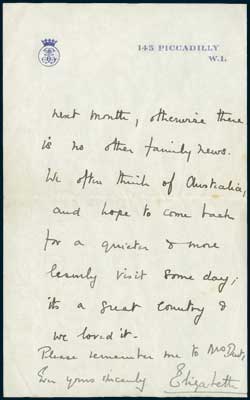 145 PICCADILLY
W.1.
next month, otherwise there
is no other family news.
We often think of Australia,
and hope to come back
for a quieter & more
leisurely visit some day;
its a great country &
we loved it.
Please remember me to Mrs
Ever yours sincerely Elizabeth